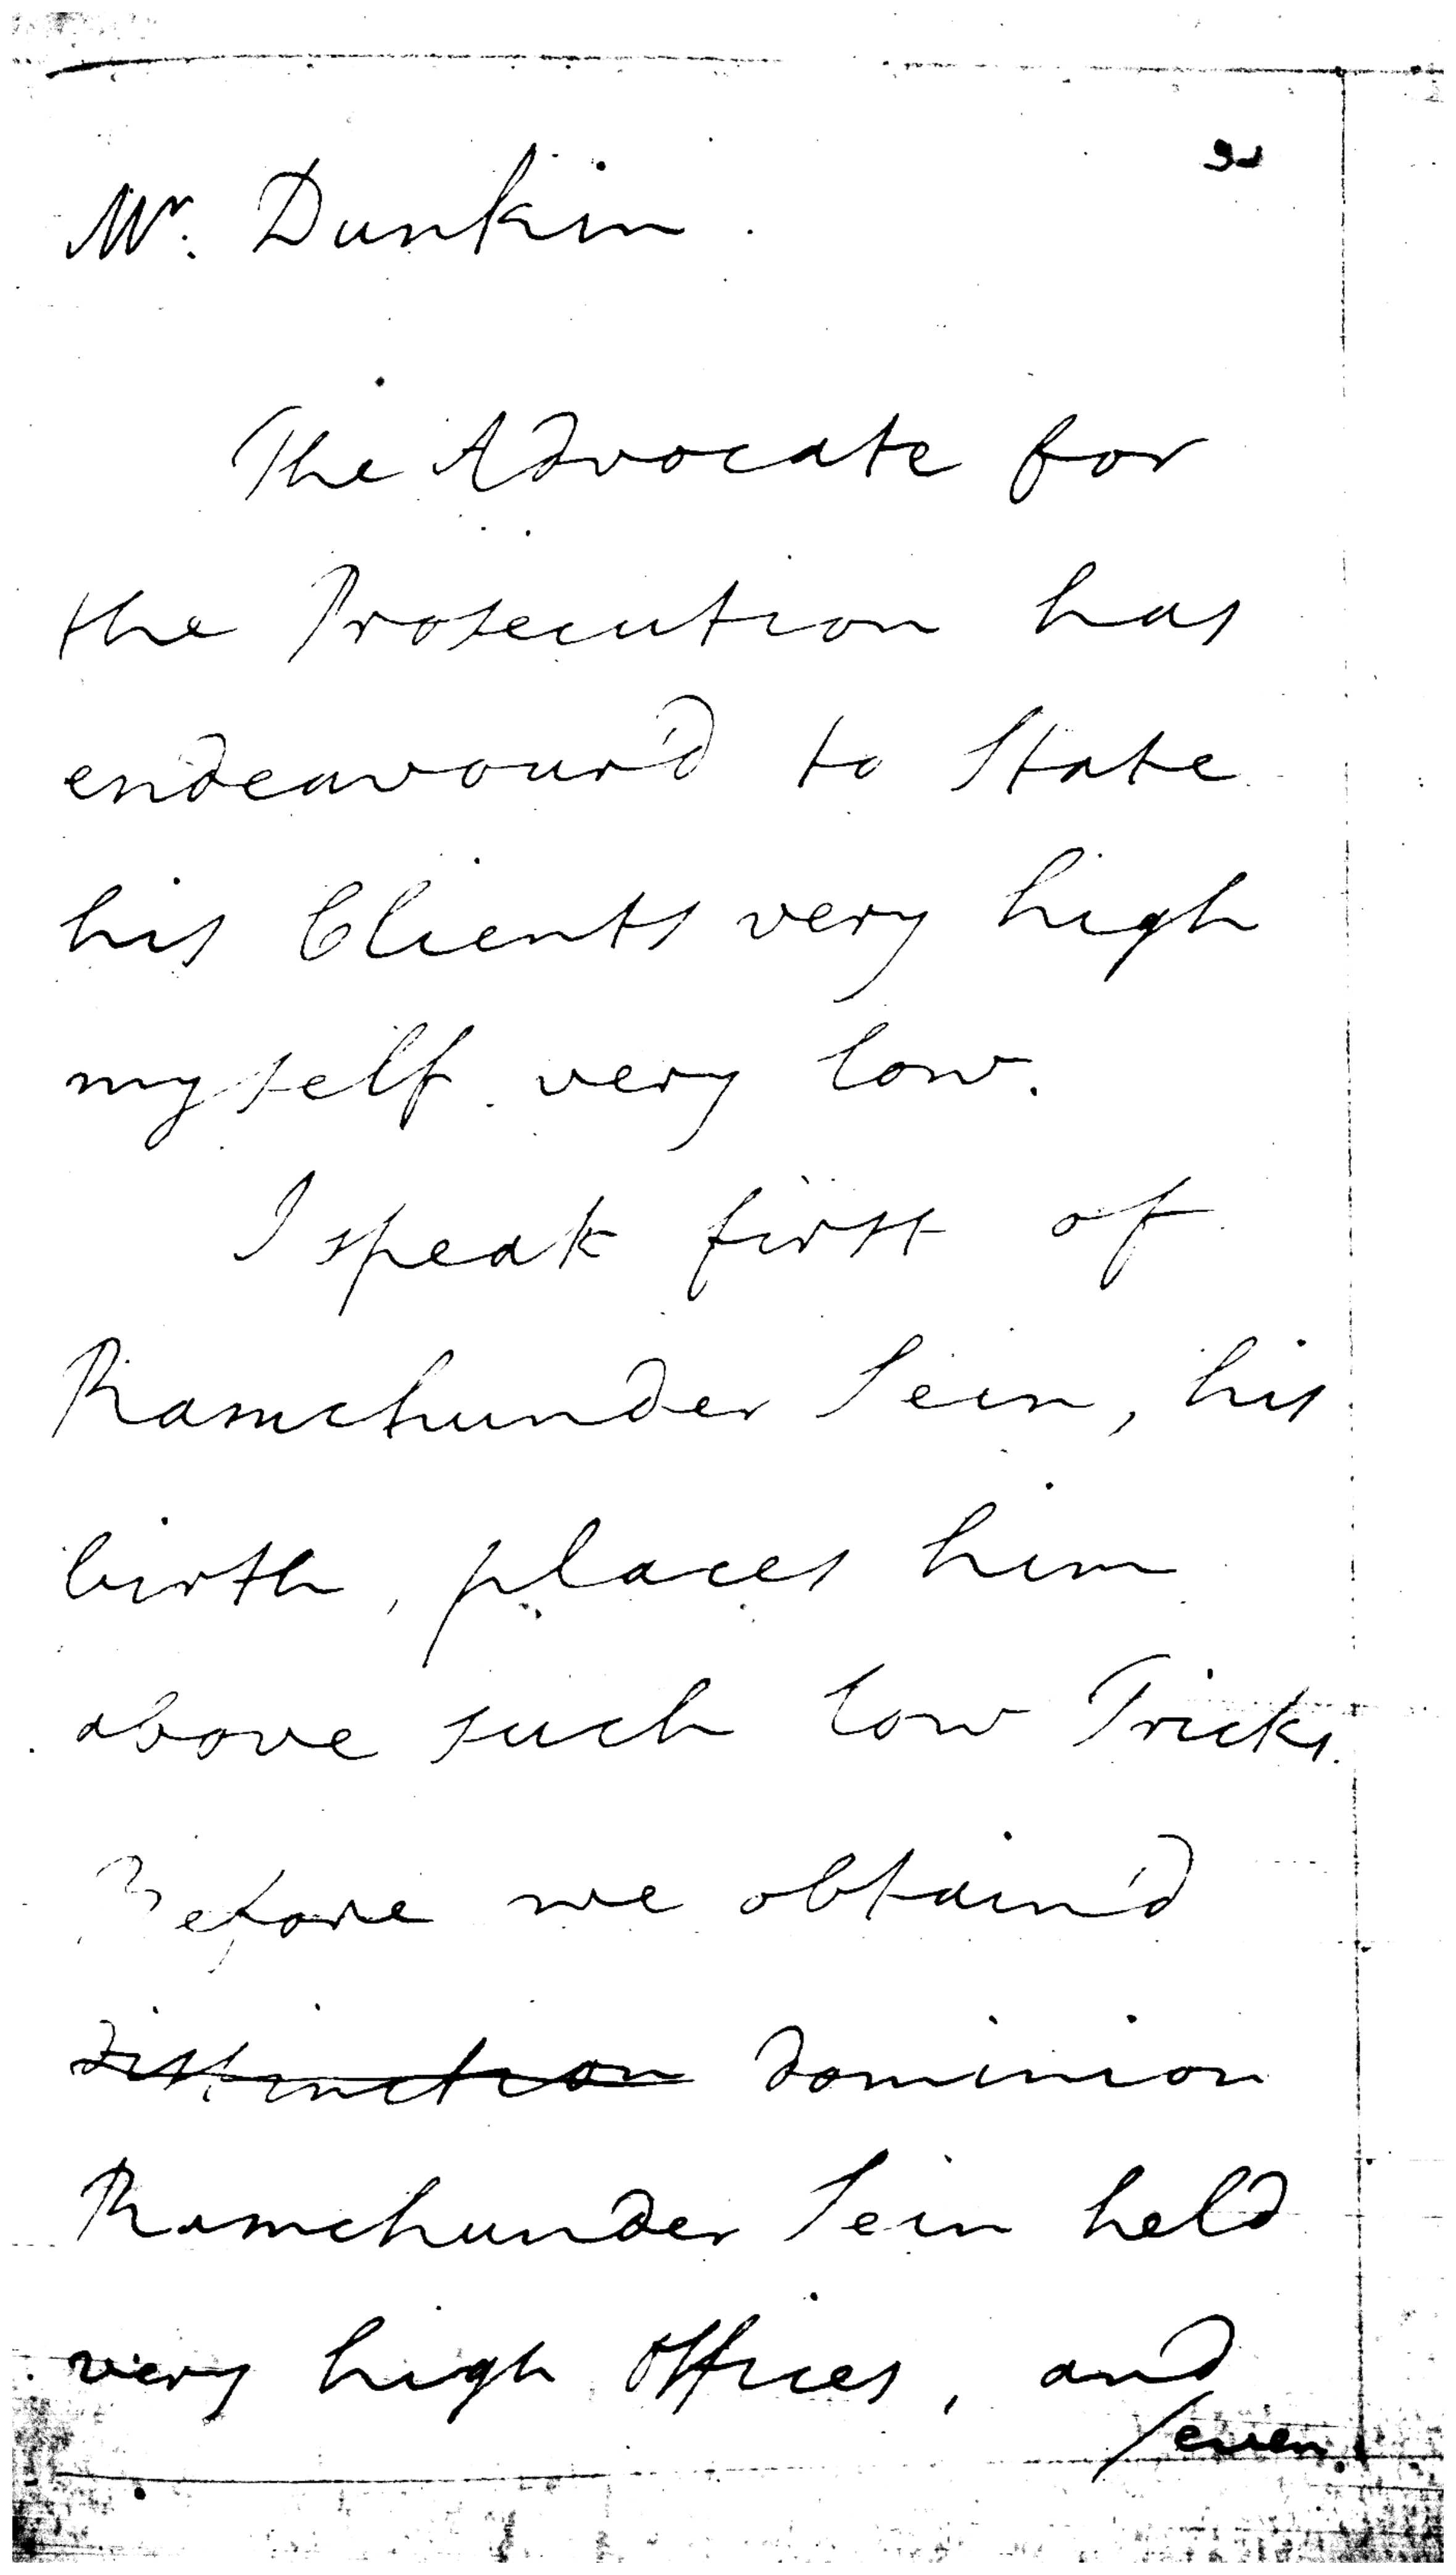 Mr. Dunkin.
The Advocate for
the Prosecution has
endeavour'd to State
his Clients very high
myself very low.
I speak first of
Ramchunder Sein, his
birth, places him
above such low Tricks.
Before we obtain'd
distinction dominion
Ramchunder Sein held
very high Offices, and
/even